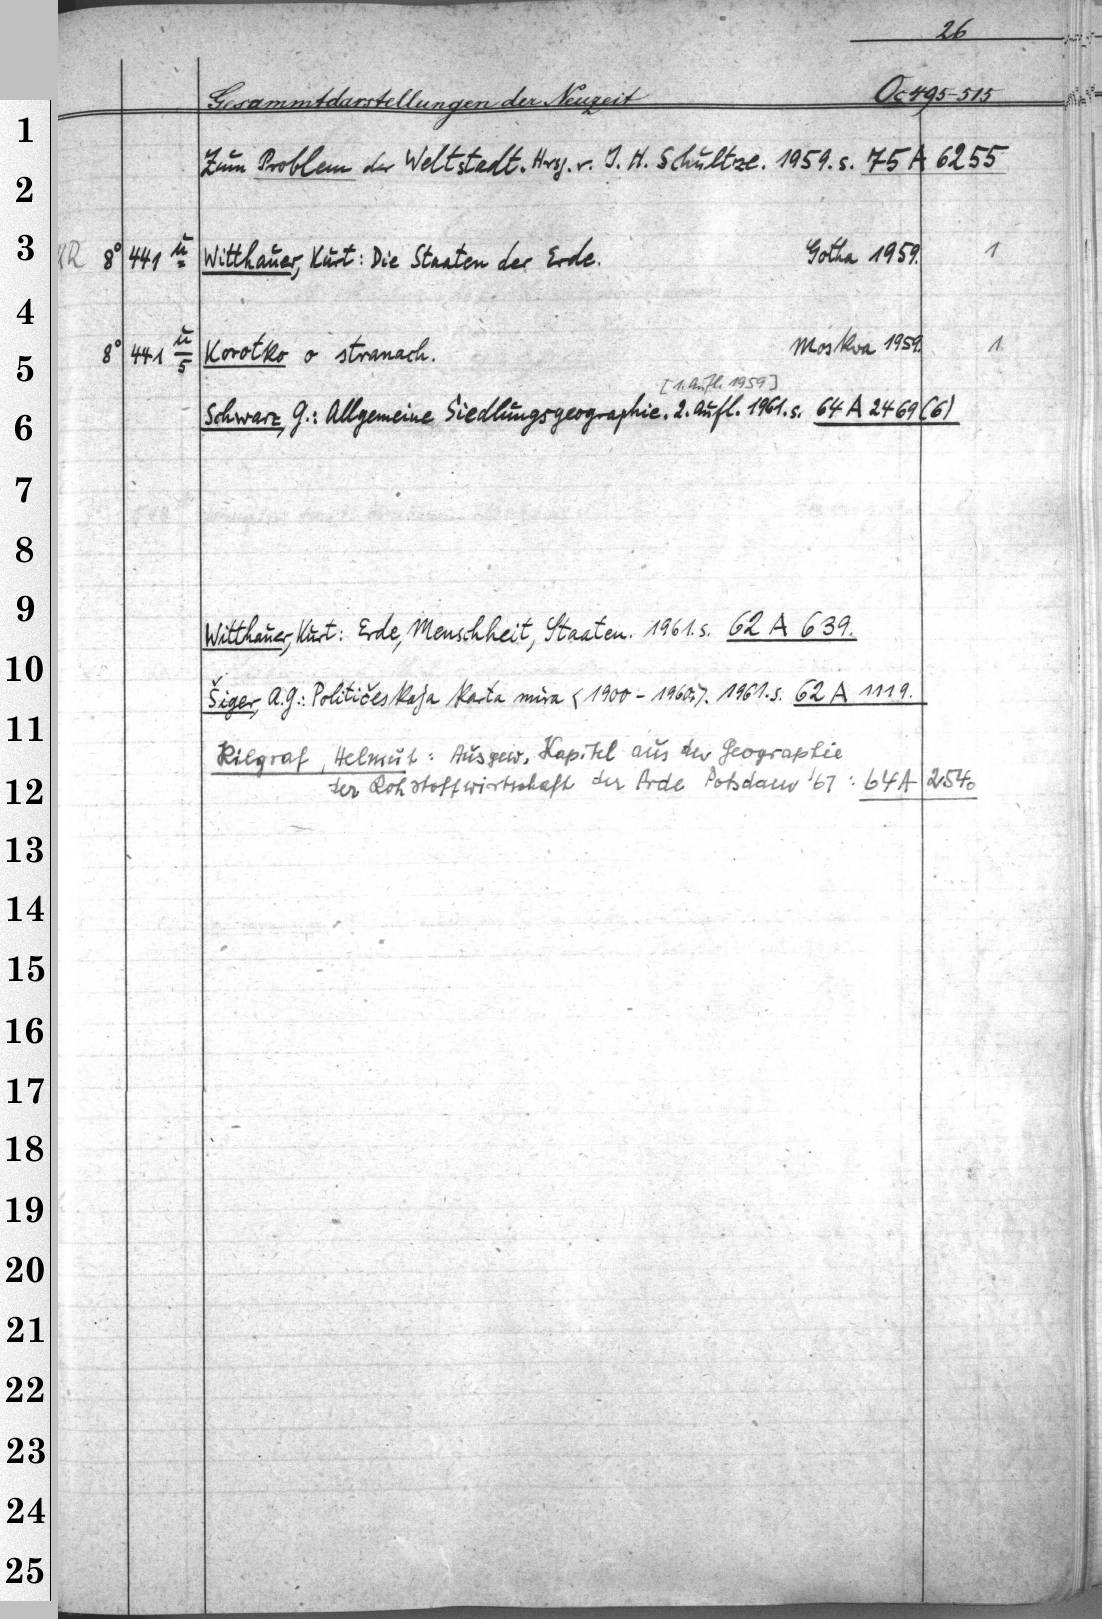 26
Gesammtdarstellungen der Neuzeit Oc 495-515
1
Zum Problem der Weltstadt. Hrsg. v. J. H. Schultze. 1959. s. 75 A 6255
2
3 8° 441 ü Witthauer, Kurt: Die Staaten der Erde. Gotha 1959. 1
4
5 8° 441 ü/5 Korotko o stranach. Moskva 1959. 1
[1. Aufl. 1959]
6 Schwarz, G.: Allgemeine Siedlungsgeographie. 2. Aufl. 1961. s. 64 A 2469(6)
7
8
9
Witthauer, Kurt: Erde, Menschheit, Staaten. 1961. s. 62 A 639.
10
Šiger, A.G.: Političeskaja karta mira <1900-1960>. 1961. s. 62 A 1119.
11
Helmut: Ausgew. Kapitel aus der Geographie
12 der Rohstoffwirtschaft der Erde Potsdam '67: 64 A 2540
13
14
15
16
17
18
19
20
21
22
23
24
25